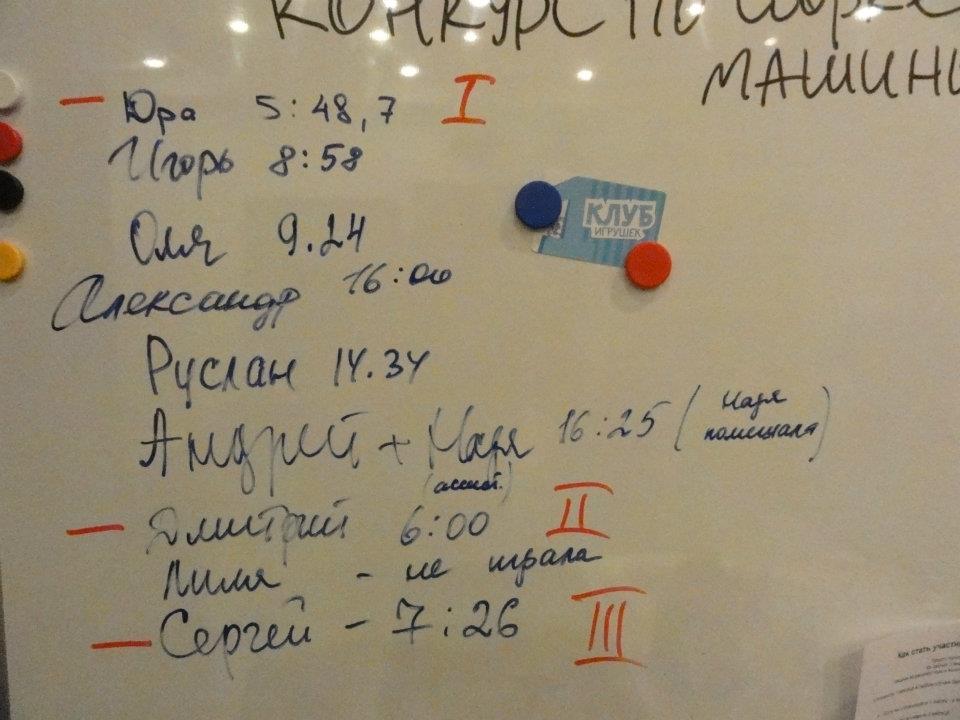 КОНКУРС ПО сборке
МАШИНЫ
Юра 5:48,7 I
Игорь 8:58
Оля 9.24
Александр 16:00
Руслан 14.34
Андрей + Надя 16:25 (Надя помешала)
(ассист.)
Дмитрий 6:00 II
Лиля - не играла
Сергей - 7:26 III
КЛУБ
ИГРУШЕК
Как стать участни